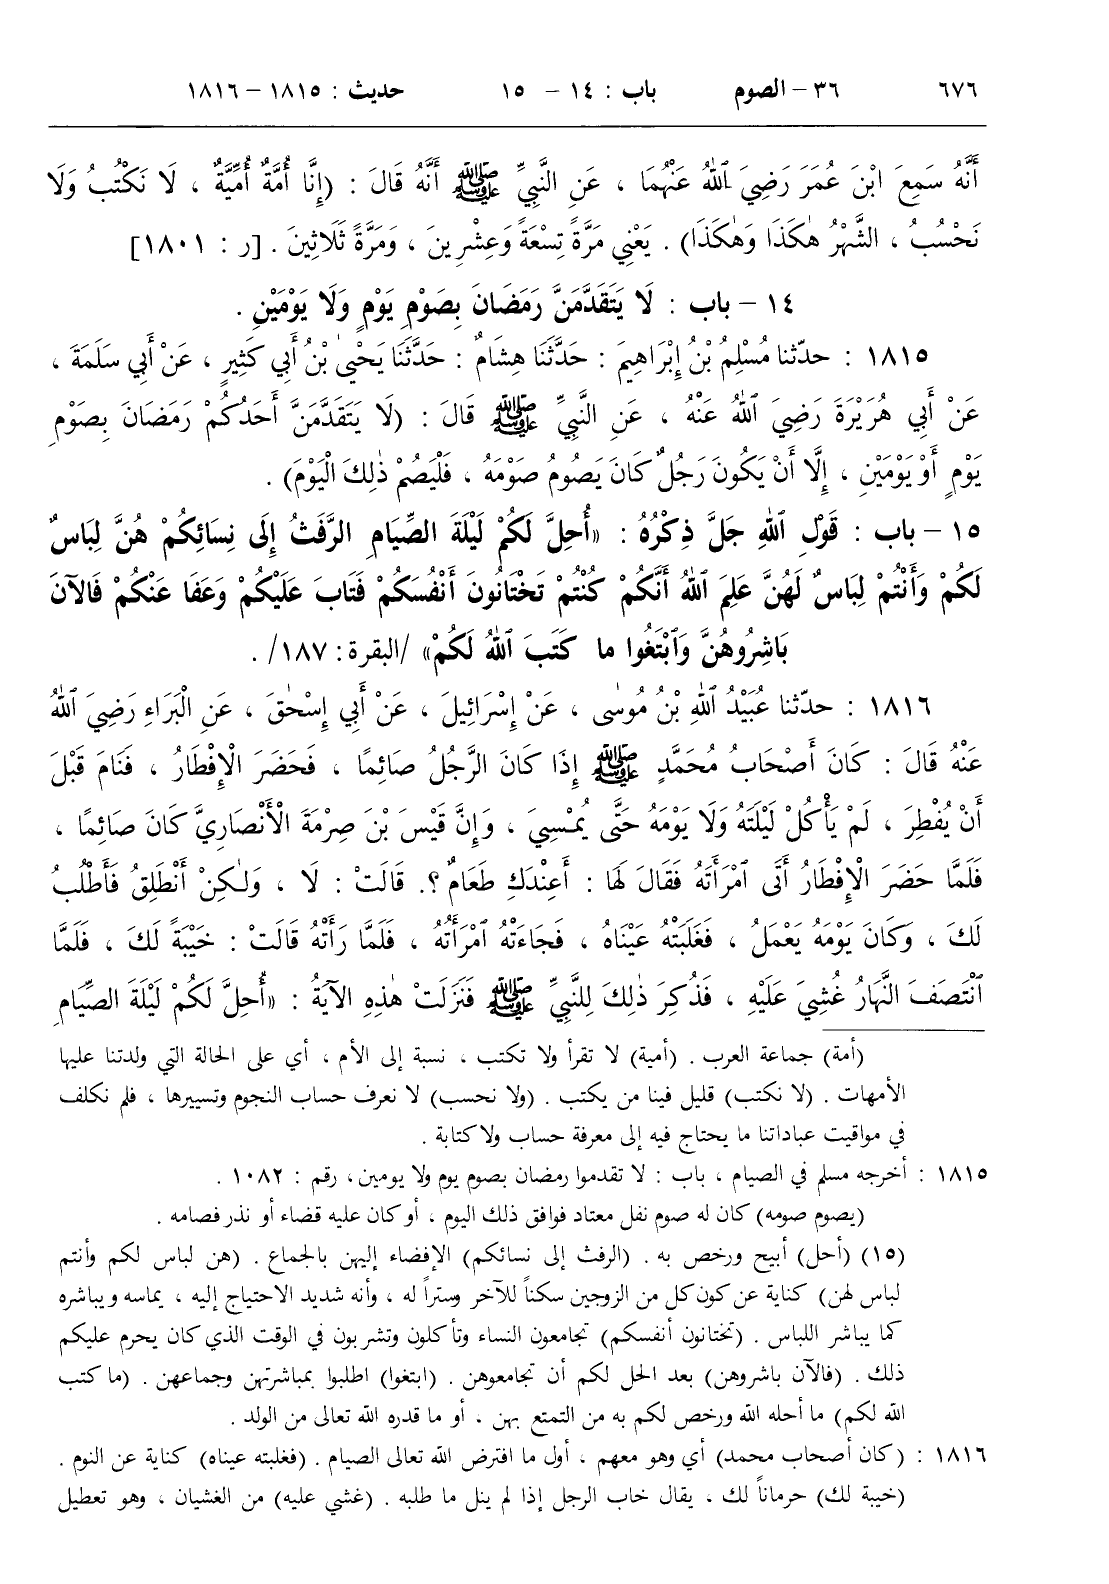 ٦٧٦ ٣٦ – الصوم باب : ١٤ – ١٥ حديث : ١٨١٥ – ١٨١٦
أَنَّهُ سَمِعَ ابْنَ عُمَرَ رَضِيَ ٱللهُ عَنْهُمَا ، عَنِ النَّبِيِّ ﷺ أَنَّهُ قَالَ : (إِنَّا أُمَّةٌ أُمِّيَّةٌ ، لَا نَكْتُبُ وَلَا
نَحْسُبُ ، الشَّهْرُ هٰكَذَا وَهٰكَذَا) . يَعْنِي مَرَّةً تِسْعَةً وَعِشْرِينَ ، وَمَرَّةً ثَلَاثِينَ . [ر : ١٨٠١]
١٤ – باب : لَا يَتَقَدَّمَنَّ رَمَضَانَ بِصَوْمِ يَوْمٍ وَلَا يَوْمَيْنِ .
١٨١٥ : حدّثنا مُسْلِمُ بْنُ إِبْرَاهِيمَ : حَدَّثَنَا هِشَامٌ : حَدَّثَنَا يَحْيىٰ بْنُ أَبِي كَثِيرٍ ، عَنْ أَبِي سَلَمَةَ ،
عَنْ أَبِي هُرَيْرَةَ رَضِيَ ٱللهُ عَنْهُ ، عَنِ النَّبِيِّ ﷺ قَالَ : (لَا يَتَقَدَّمَنَّ أَحَدُكُمْ رَمَضَانَ بِصَوْمِ
يَوْمٍ أَوْ يَوْمَيْنِ ، إِلَّا أَنْ يَكُونَ رَجُلٌ كَانَ يَصُومُ صَوْمَهُ ، فَلْيَصُمْ ذٰلِكَ الْيَوْمَ) .
١٥ – باب : قَوْلِ ٱللهِ جَلَّ ذِكْرُهُ : «أُحِلَّ لَكُمْ لَيْلَةَ الصِّيَامِ الرَّفَثُ إِلَى نِسَائِكُمْ هُنَّ لِبَاسٌ
لَكُمْ وَأَنْتُمْ لِبَاسٌ لَهُنَّ عَلِمَ ٱللهُ أَنَّكُمْ كُنْتُمْ تَخْتَانُونَ أَنْفُسَكُمْ فَتَابَ عَلَيْكُمْ وَعَفَا عَنْكُمْ فَالآنَ
بَاشِرُوهُنَّ وَٱبْتَغُوا ما كَتَبَ ٱللهُ لَكُمْ» /البقرة: ١٨٧/ .
١٨١٦ : حدّثنا عُبَيْدُ ٱللهِ بْنُ مُوسٰى ، عَنْ إِسْرَائِيلَ ، عَنْ أَبِي إِسْحٰقَ ، عَنِ الْبَرَاءِ رَضِيَ ٱللهُ
عَنْهُ قَالَ : كَانَ أَصْحَابُ مُحَمَّدٍ ﷺ إِذَا كَانَ الرَّجُلُ صَائِمًا ، فَحَضَرَ الْإِفْطَارُ ، فَنَامَ قَبْلَ
أَنْ يُفْطِرَ ، لَمْ يَأْكُلْ لَيْلَتَهُ وَلَا يَوْمَهُ حَتَّى يُمْسِيَ ، وَإِنَّ قَيْسَ بْنَ صِرْمَةَ الْأَنْصَارِيَّ كَانَ صَائِمًا ،
فَلَمَّا حَضَرَ الْإِفْطَارُ أَتَى ٱمْرَأَتَهُ فَقَالَ لَهَا : أَعِنْدَكِ طَعَامٌ ؟. قَالَتْ : لَا ، وَلٰكِنْ أَنْطَلِقُ فَأَطْلُبُ
لَكَ ، وَكَانَ يَوْمَهُ يَعْمَلُ ، فَغَلَبَتْهُ عَيْنَاهُ ، فَجَاءَتْهُ ٱمْرَأَتُهُ ، فَلَمَّا رَأَتْهُ قَالَتْ : خَيْبَةً لَكَ ، فَلَمَّا
ٱنْتَصَفَ النَّهَارُ غُشِيَ عَلَيْهِ ، فَذُكِرَ ذٰلِكَ لِلنَّبِيِّ ﷺ فَنَزَلَتْ هٰذِهِ الآيَةُ : «أُحِلَّ لَكُمْ لَيْلَةَ الصِّيَامِ
(أمة) جماعة العرب . (أمية) لا تقرأ ولا تكتب ، نسبة إلى الأم ، أي على الحالة التي ولدتنا عليها
الأمهات . (لا نكتب) قليل فينا من يكتب . (ولا نحسب) لا نعرف حساب النجوم وتسييرها ، فلم نكلف
في مواقيت عباداتنا ما يحتاج فيه إلى معرفة حساب ولا كتابة .
١٨١٥ : أخرجه مسلم في الصيام ، باب : لا تقدموا رمضان بصوم يوم ولا يومين، رقم : ١٠٨٢ .
(يصوم صومه) كان له صوم نفل معتاد فوافق ذلك اليوم ، أو كان عليه قضاء أو نذر فصامه .
(١٥) (أحل) أبيح ورخص به . (الرفث إلى نسائكم) الإفضاء إليهن بالجماع . (هن لباس لكم وأنتم
لباس لهن) كناية عن كون كل من الزوجين سكناً للآخر وستراً له ، وأنه شديد الاحتياج إليه ، يماسه ويباشره
كما يباشر اللباس . (تختانون أنفسكم) تجامعون النساء وتأكلون وتشربون في الوقت الذي كان يحرم عليكم
ذلك . (فالآن باشروهن) بعد الحل لكم أن تجامعوهن . (ابتغوا) اطلبوا بمباشرتهن وجماعهن . (ما كتب
الله لكم) ما أحله الله ورخص لكم به من التمتع بهن ، أو ما قدره الله تعالى من الولد .
١٨١٦ : (كان أصحاب محمد) أي وهو معهم ، أول ما افترض الله تعالى الصيام . (فغلبته عيناه) كناية عن النوم .
(خيبة لك) حرماناً لك ، يقال خاب الرجل إذا لم ينل ما طلبه . (غشي عليه) من الغشيان ، وهو تعطيل